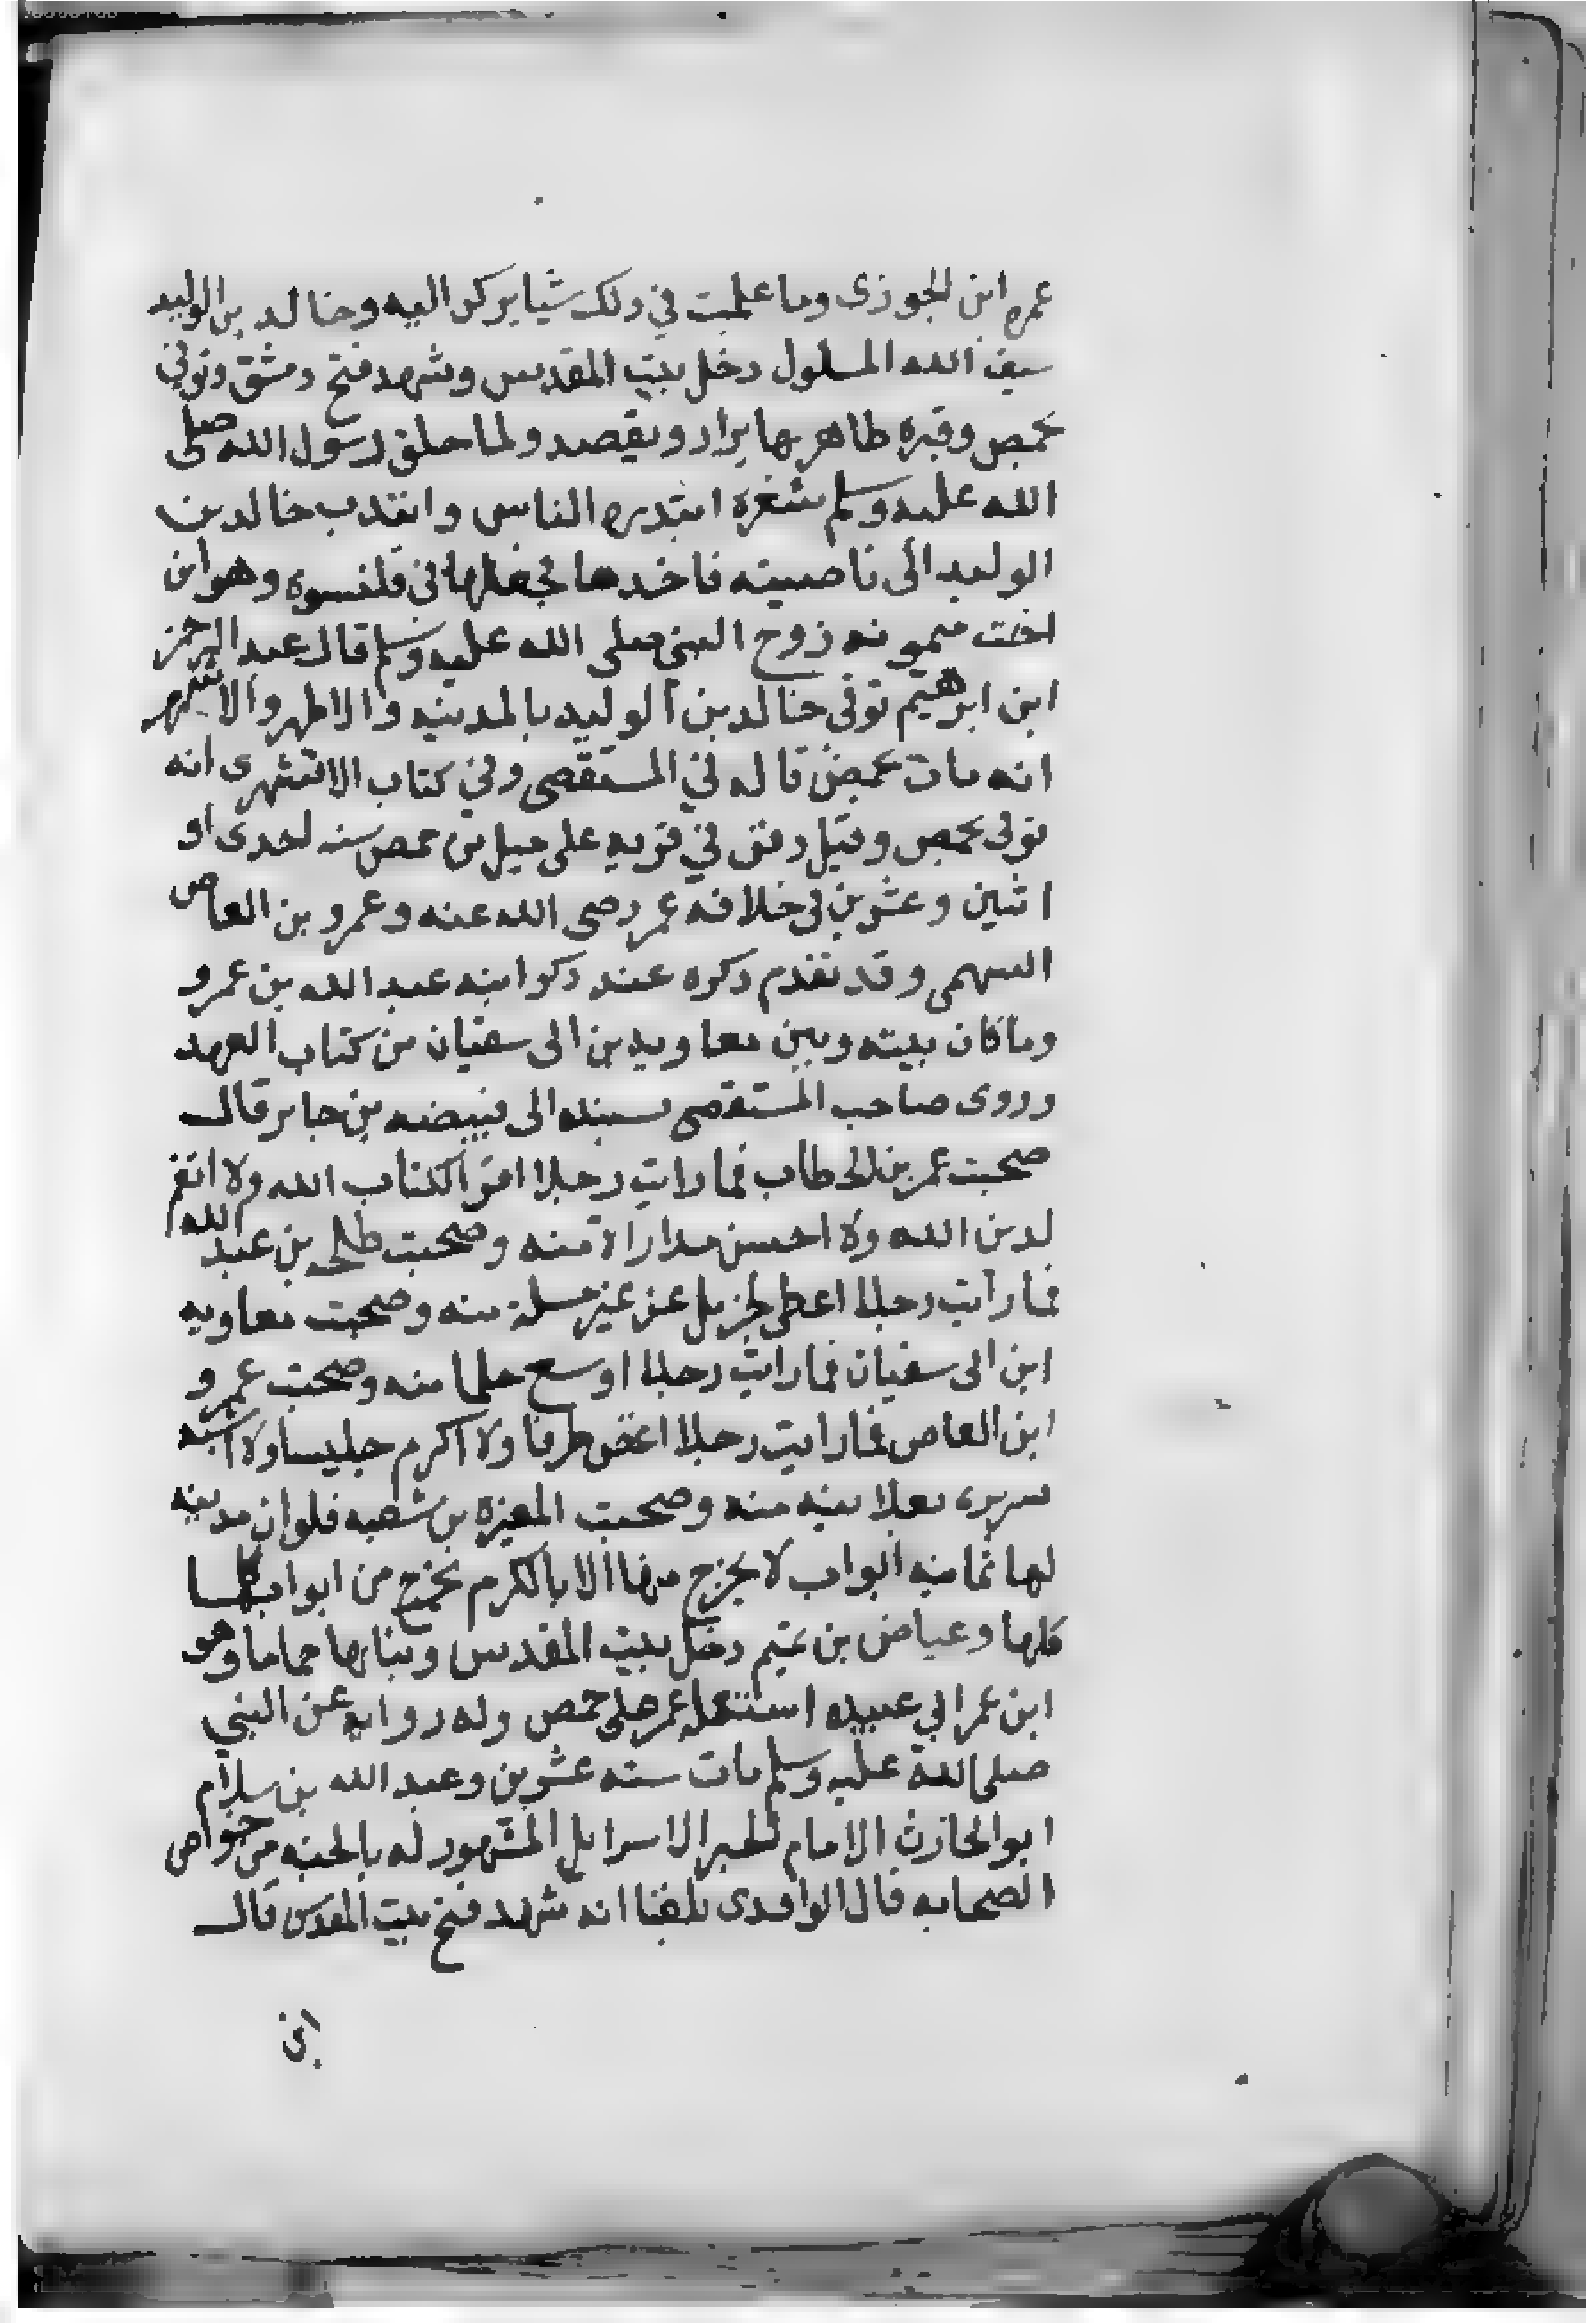 عمره ابن الجوزى وما علمت في دلك شيا يركن اليه وخالد بن الوليد
سيف الله المسلول دخل بيت المقدس وشهد فتح دمشق وتوفي
بحمص وقبره طاهر بها يزار ويقصد ولما حلق رسول الله صلى
الله عليه وسلم شعره ابتدره الناس وانتدب خالد بن
الوليد الى ناصيته فاخدها فجعلها في قلنسوه وهو ابن
اخت ميمونه زوج النبى صلى الله عليه وسلم قال عبد الرحمن
ابن ابرهيم توفى خالد بن الوليد بالمدينه والاظهر والاشهر
انه مات بحمص قاله في المستقصى وفي كتاب الاقشهرى انه
توفى بحمص وقيل دفن في قريه على ميل من حمص سنه احدى او
اثنين وعشرين في خلافه عمر رضى الله عنه وعمرو بن العاص
السهمى وقد تقدم دكره عند دكر ابنه عبد الله بن عمرو
وما كان بينه وبين معاويه بن ابى سفيان من كتاب العهد
وروى صاحب المستقصى بسنده الى قبيصه بن جابر قال
صحبت عمر بن الخطاب فما رايت رجلا اقرا لكتاب الله ولا افقه
لدين الله ولا احسن مداراة منه وصحبت طلحه بن عبد الله
فما رايت رجلا اعطى لجزيل عن غير مسلة منه وصحبت معاويه
ابن ابى سفيان فما رايت رجلا اوسع حلما منه وصحبت عمرو
ابن العاص فما رايت رجلا اغض طرفا ولا اكرم جليسا ولا اشبه
سريره بعلانيه منه وصحبت المغيره بن شعبه فلو ان مدينه
لها ثمانيه ابواب لا يخرج منها الا بالكرم لخرج من ابوابها
كلها وعياض بن غنيم دخل بيت المقدس وبنا بها حماما وهو
ابن عم ابي عبيده استعمله عمر على حمص وله روايه عن النبي
صلى الله عليه وسلم مات سنه عشرين وعبد الله بن سلام
ابو الحارث الامام الحبر الاسرايلي المشهود له بالجنه من خواص
الصحابه قال الواقدى بلغنا انه شهد فتح بيت المقدس قال
ابن